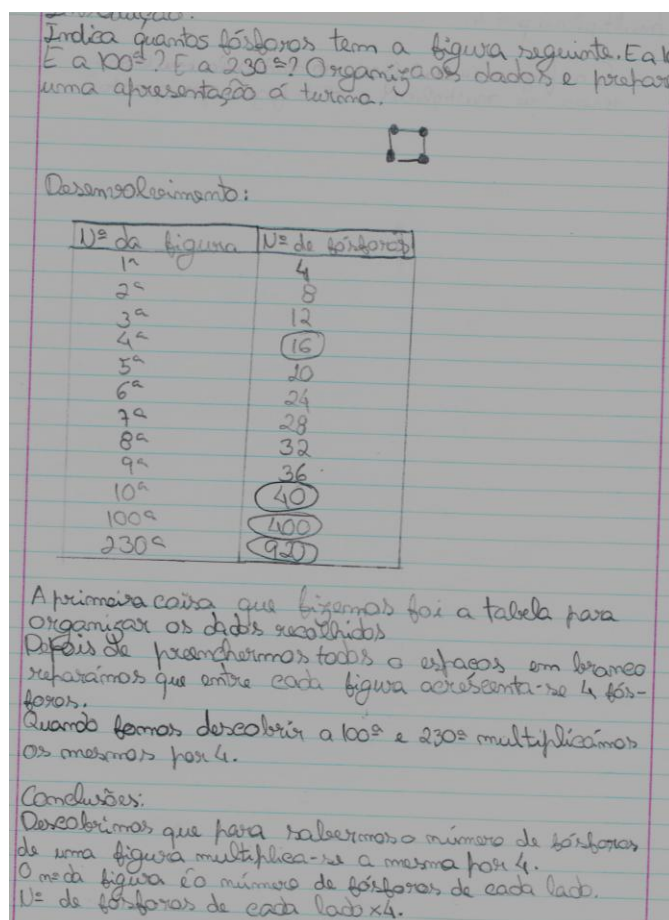 Indica quantos fósforos tem a figura seguinte. E a
E a 100ª? E a 230ª? Organiza os dados e prepara
uma apresentação á turma.
Desenvolvimento:
Nº da figura Nº de fósforos
1ª 4
2ª 8
3ª 12
4ª 16
5ª 20
6ª 24
7ª 28
8ª 32
9ª 36
10ª 40
100ª 400
230ª 920
A primeira coisa que fizemos foi a tabela para
organizar os dados recolhidos
Depois de preenchermos todos o espaços em branco
reparámos que entre cada figura acrescenta-se 4 fós-
foros.
Quando fomos descobrir a 100ª e 230ª multiplicámos
os mesmos por 4.
Conclusões:
Descobrimos que para sabermos o número de fósforos
de uma figura multiplica-se a mesma por 4.
O nº da figura é o número de fósforos de cada lado.
Nº de fósforos de cada lado x4.